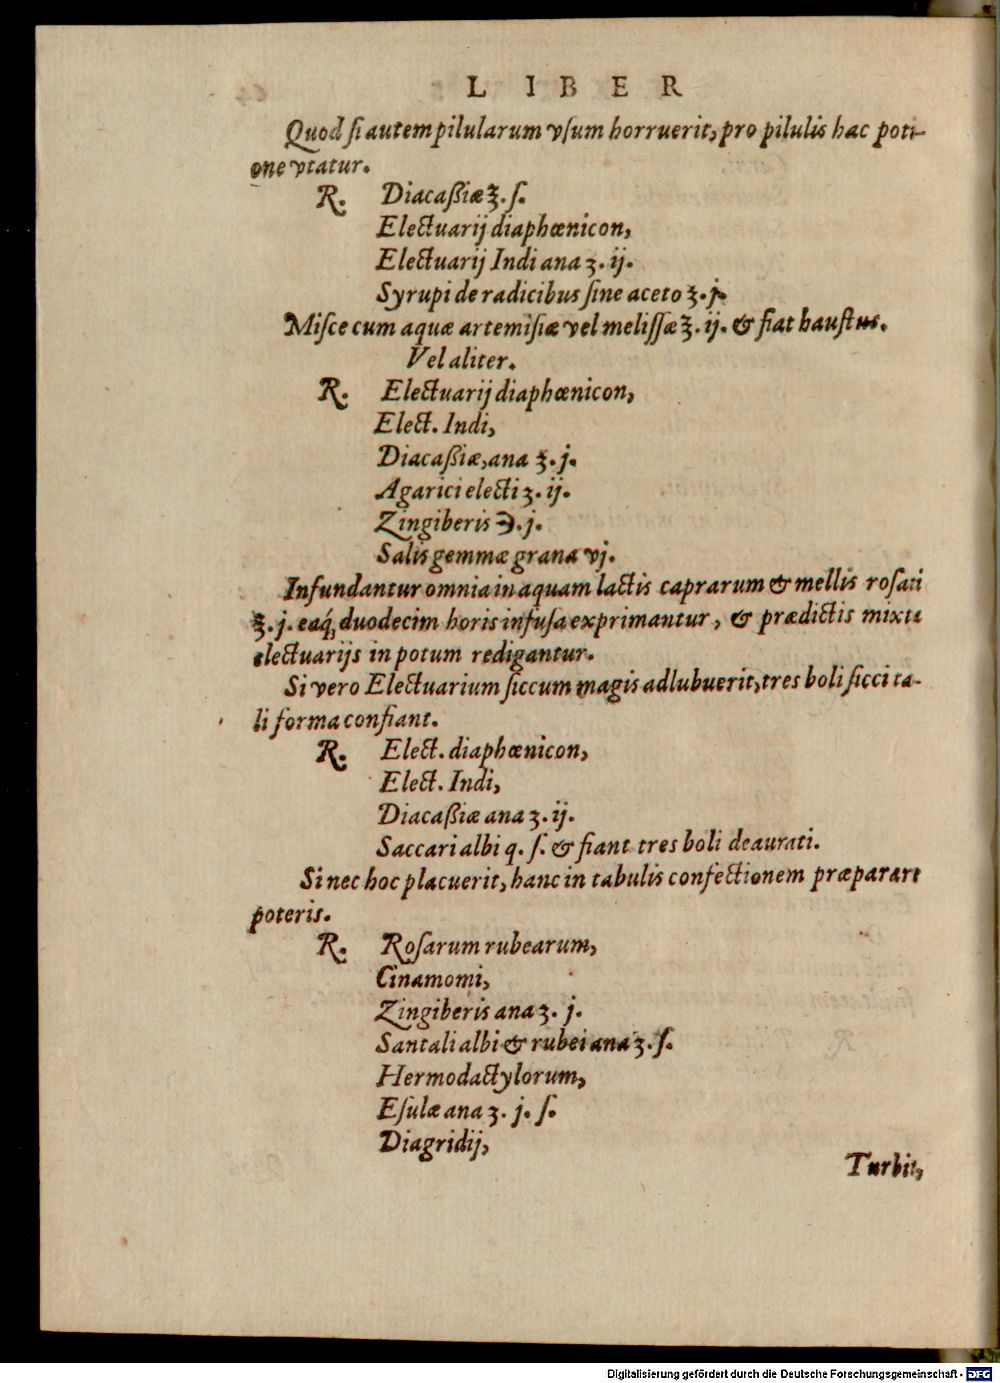 LIBER
Quod ſi autem pilularum vſum horruerit, pro pilulis hac poti-
one vtatur.
R. Diacaßiæ ℥. ſ.
Electuarij diaphœnicon,
Electuarij Indi ana ʒ. ij.
Syrupi de radicibus ſine aceto ℥. j.
Miſce cum aquæ artemiſiæ vel meliſſæ ℥. ij. & fiat hauſtus.
Vel aliter.
R. Electuarij diaphœnicon,
Elect. Indi,
Diacaßiæ, ana ℥. j.
Agarici electi ʒ. ij.
Zingiberis ℈. j.
Salis gemmæ grana vj.
Infundantur omnia in aquam lactis caprarum & mellis roſati
℥. j. eaq́; duodecim horis infuſa exprimantur, & prædictis mixta
electuarijs in potum redigantur.
Si vero Electuarium ſiccum magis adlubuerit, tres boli ſicci ta-
li forma confiant.
R. Elect. diaphœnicon,
Elect. Indi,
Diacaßiæ ana ʒ. ij.
Saccari albi q. ſ. & fiant tres boli deaurati.
Si nec hoc placuerit, hanc in tabulis confectionem præparare
poteris.
R. Roſarum rubearum,
Cinamomi,
Zingiberis ana ʒ. j.
Santali albi & rubei ana ʒ. ſ.
Hermodactylorum,
Eſulæ ana ʒ. j. ſ.
Diagridij,
Turbit,
Digitalisierung gefördert durch die Deutsche Forschungsgemeinschaft - DFG